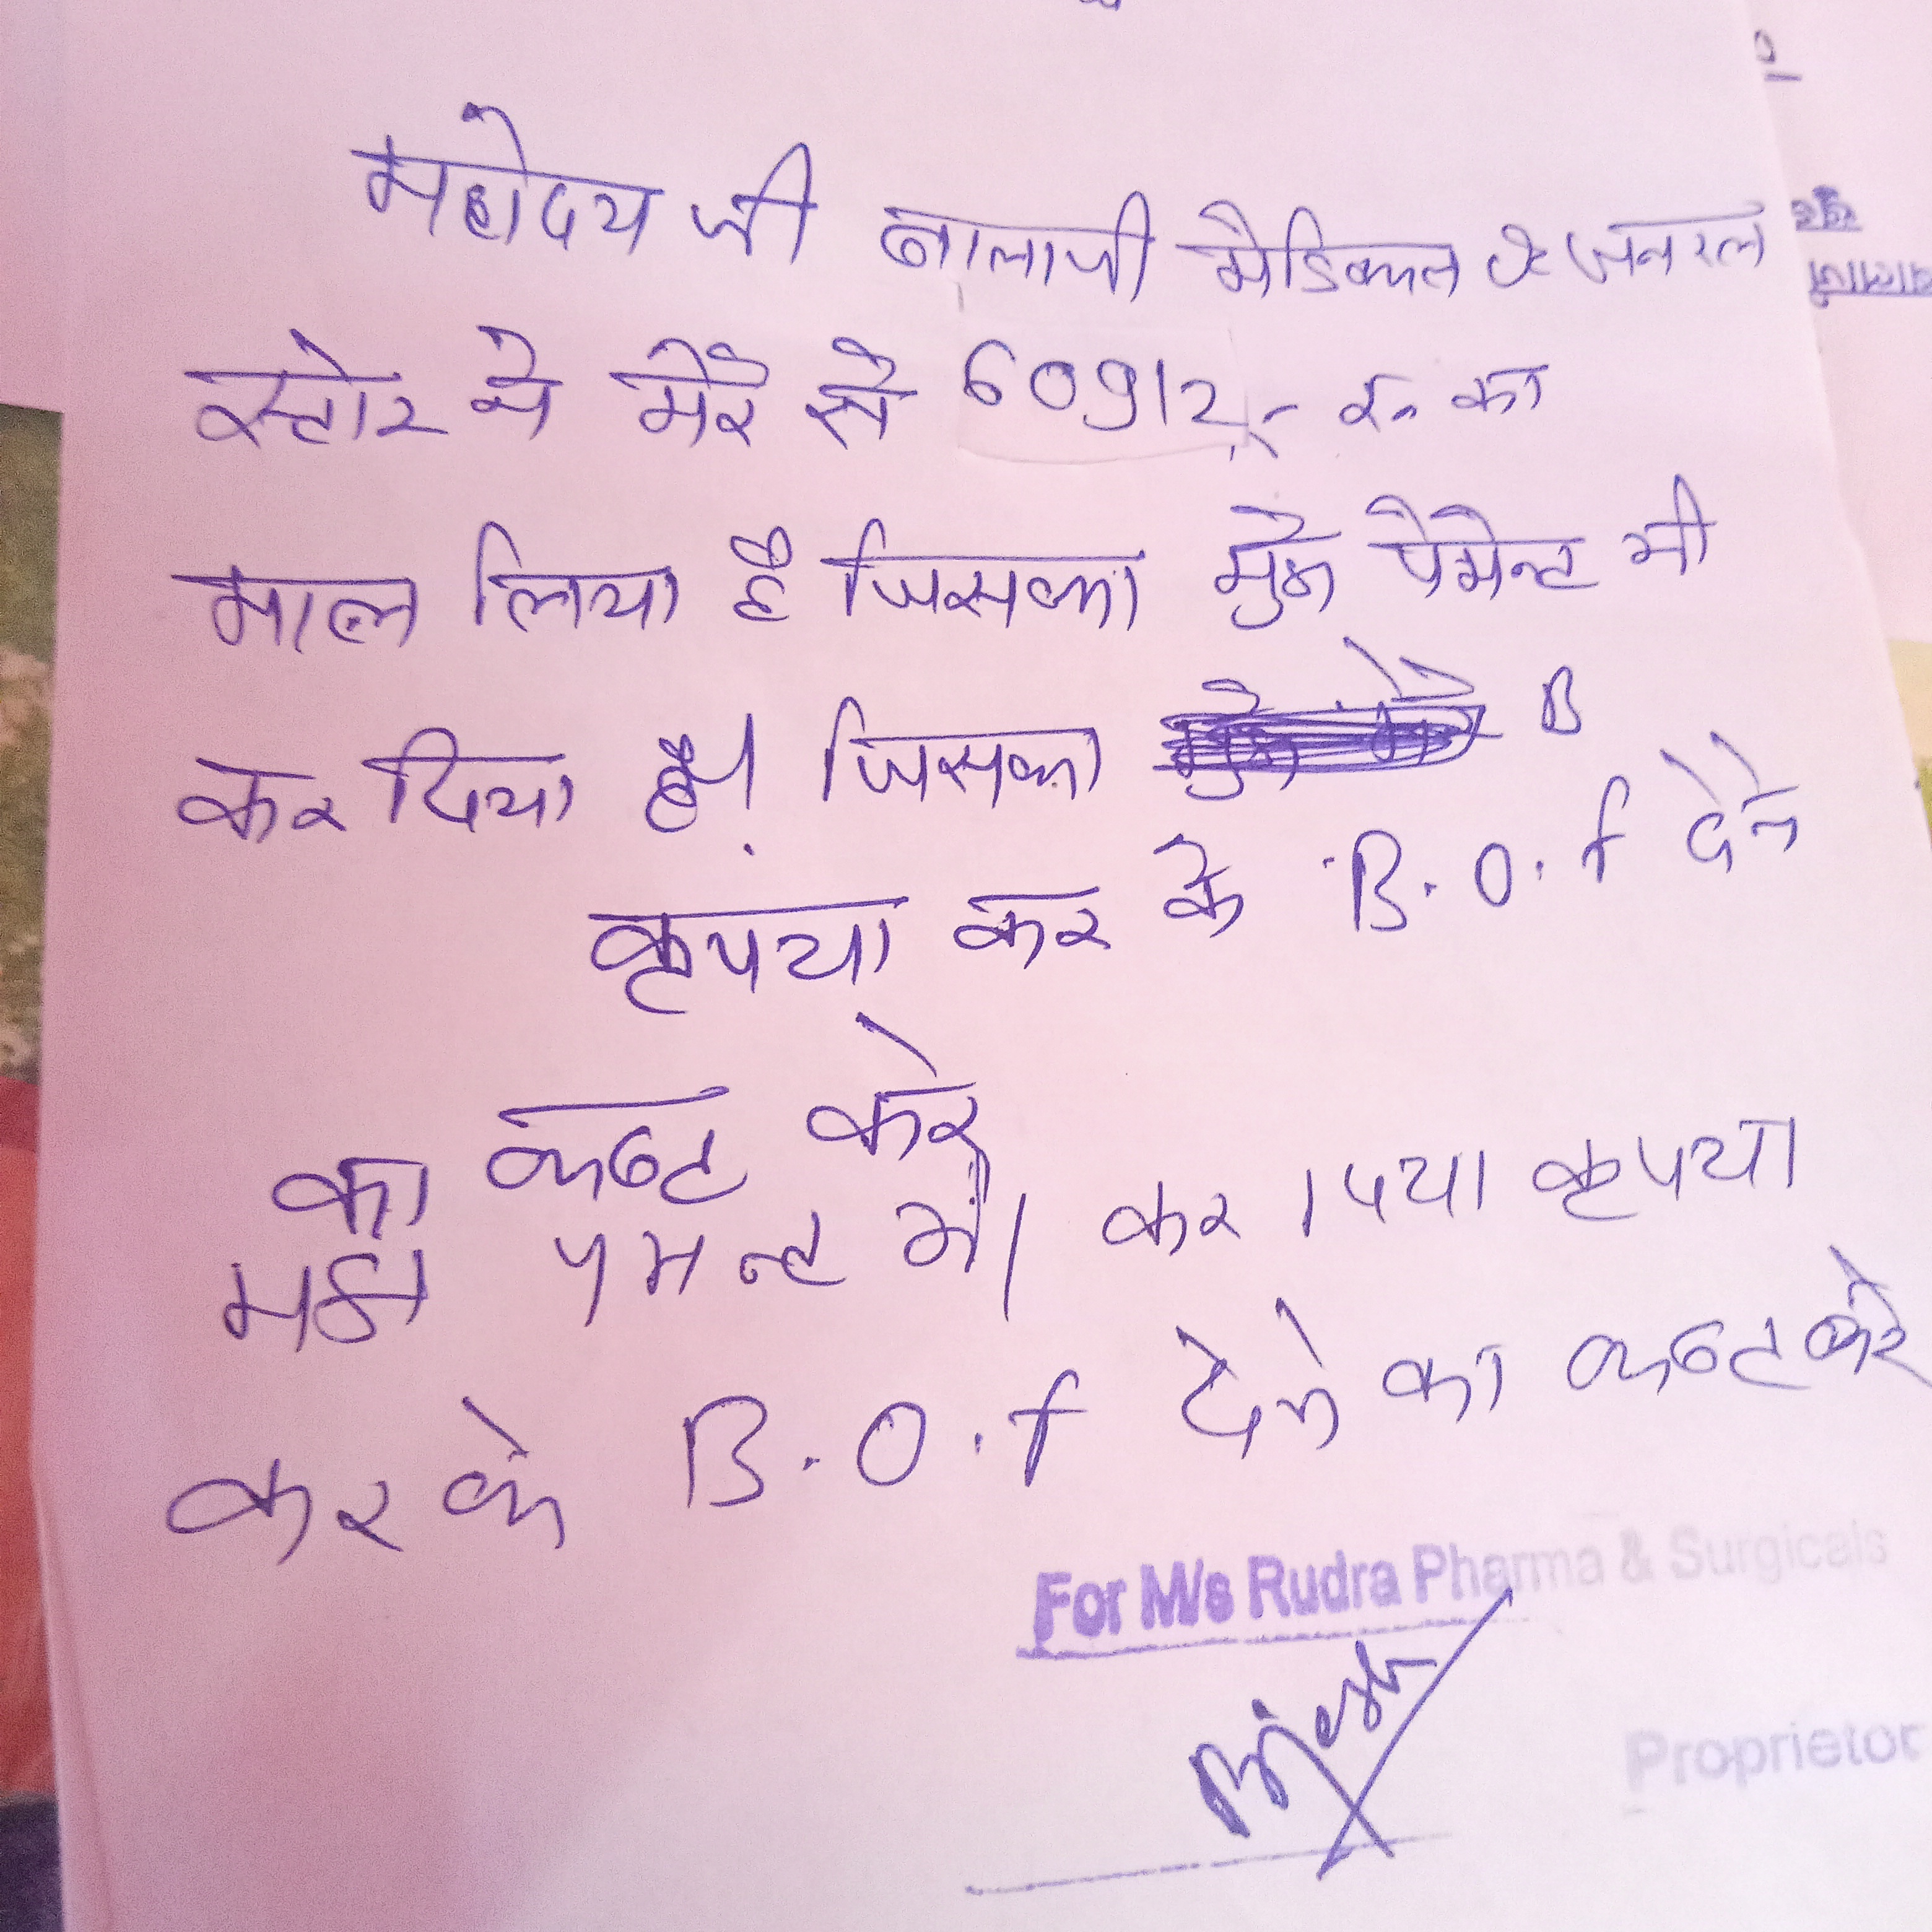 महोदय जी बालाजी मैडिकल & जनरल
स्टोर ने मेरे से 60912/- रु० का
माल लिया है जिसका मुझे पेमेन्ट भी
कर दिया है। जिसका B
कृपया कर के B.O.f देने
का कष्ट करे
पमन्ट भी कर दिया कृपया
कर के B.O.f देने का कष्ट करे
For M/s Rudra Pharma & Surgicals
Proprietor